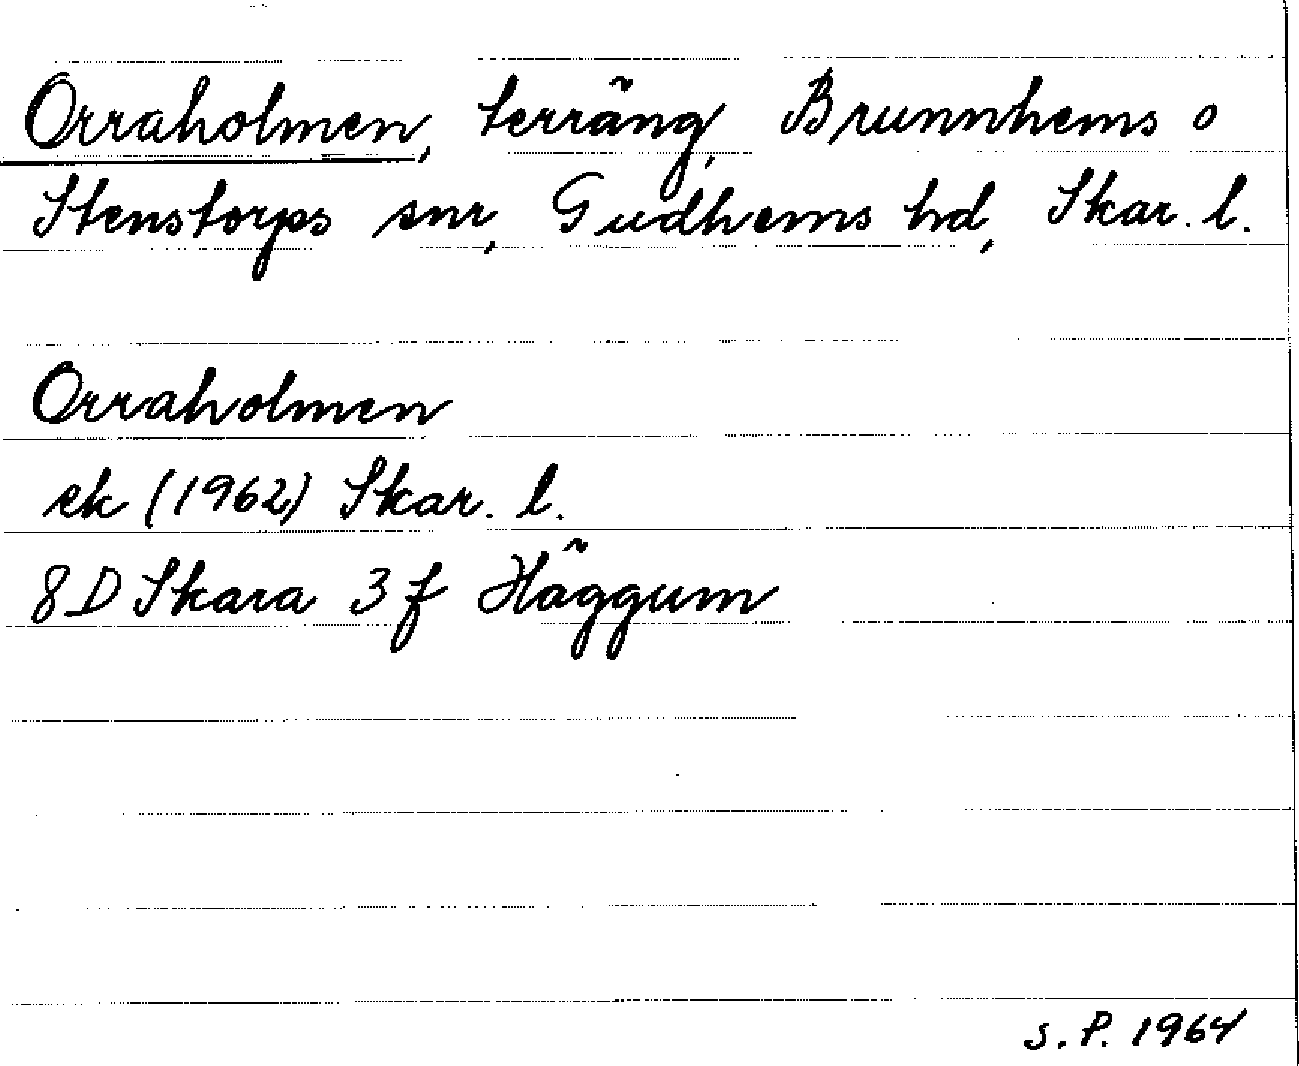 Orraholmen, terräng, Brunnhems o
Stenstorps snr, Gudhems hd, Skar. l.
Orraholmen
ek (1962) Skar. l.
8D Skara 3f Häggum
S.P. 1964